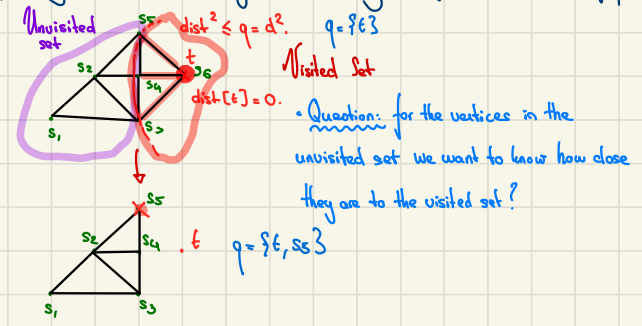 Unvisited
set
S5
dist² ≤ q = d².
q = {t}
S2
S4
t
S6
Visited Set
dist[t] = 0.
S1
S3
• Question: for the vertices in the
unvisited set we want to know how close
they are to the visited set?
S5
S2
S4
t
q = {t, S5}
S1
S3